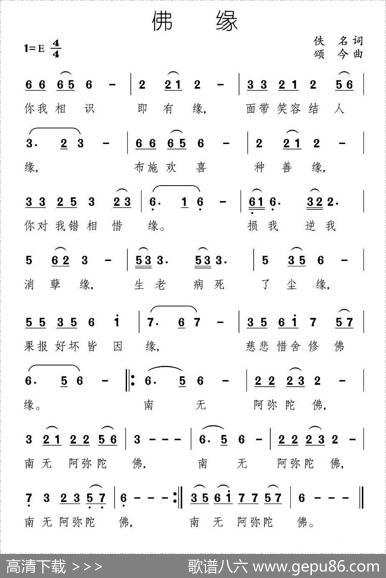 佛 缘
1=E 4/4
佚 名 词
颂 今 曲
6 6 6 5 6 - | 2 2 2 1 2 - | 3 3 2 1 5 2 5 6 |
你我 相 识 即 有 缘, 面带 笑容 结 人
3· 2 3 - | 6 6 6 5 6 - | 2 2 2 1 2 - |
缘, 布施 欢 喜 种 善 缘,
3 3 2 5 3 2 3 | 6· 1 6 - | 6 1 6· 3 2 2· |
你对 我错 相 惜 缘。 损 我 逆 我
5 6 2 3 - | 5 5 3 5 3· | 2 3 5 6 - |
消 孽 缘, 生老 病死 了 尘 缘,
5 5 3 5 6 i | 7· 6 7 - | 3 3 5 6 i 7 5 7 |
果报 好坏 皆 因 缘, 慈悲 惜舍 修 佛
6· 5 6 - |: 6· 5 6 - | 2 2 2 3 2 - |
缘。 南 无 阿弥 陀 佛,
3 2 1 2 2 5 6 | 3 - - - | 6· 5 6 - | 2 2 2 3 2 - |
南 无 阿弥 陀 佛, 南 无 阿弥 陀 佛,
7 3 2 2 3 5 7 | 6 - - - :| 4 5 6 i 7 5 5 7 | 6 - - - |
南 无 阿弥 陀 佛, 南 无 阿弥陀 佛。
高清下载 >>>
歌谱八六 www.gepu86.com